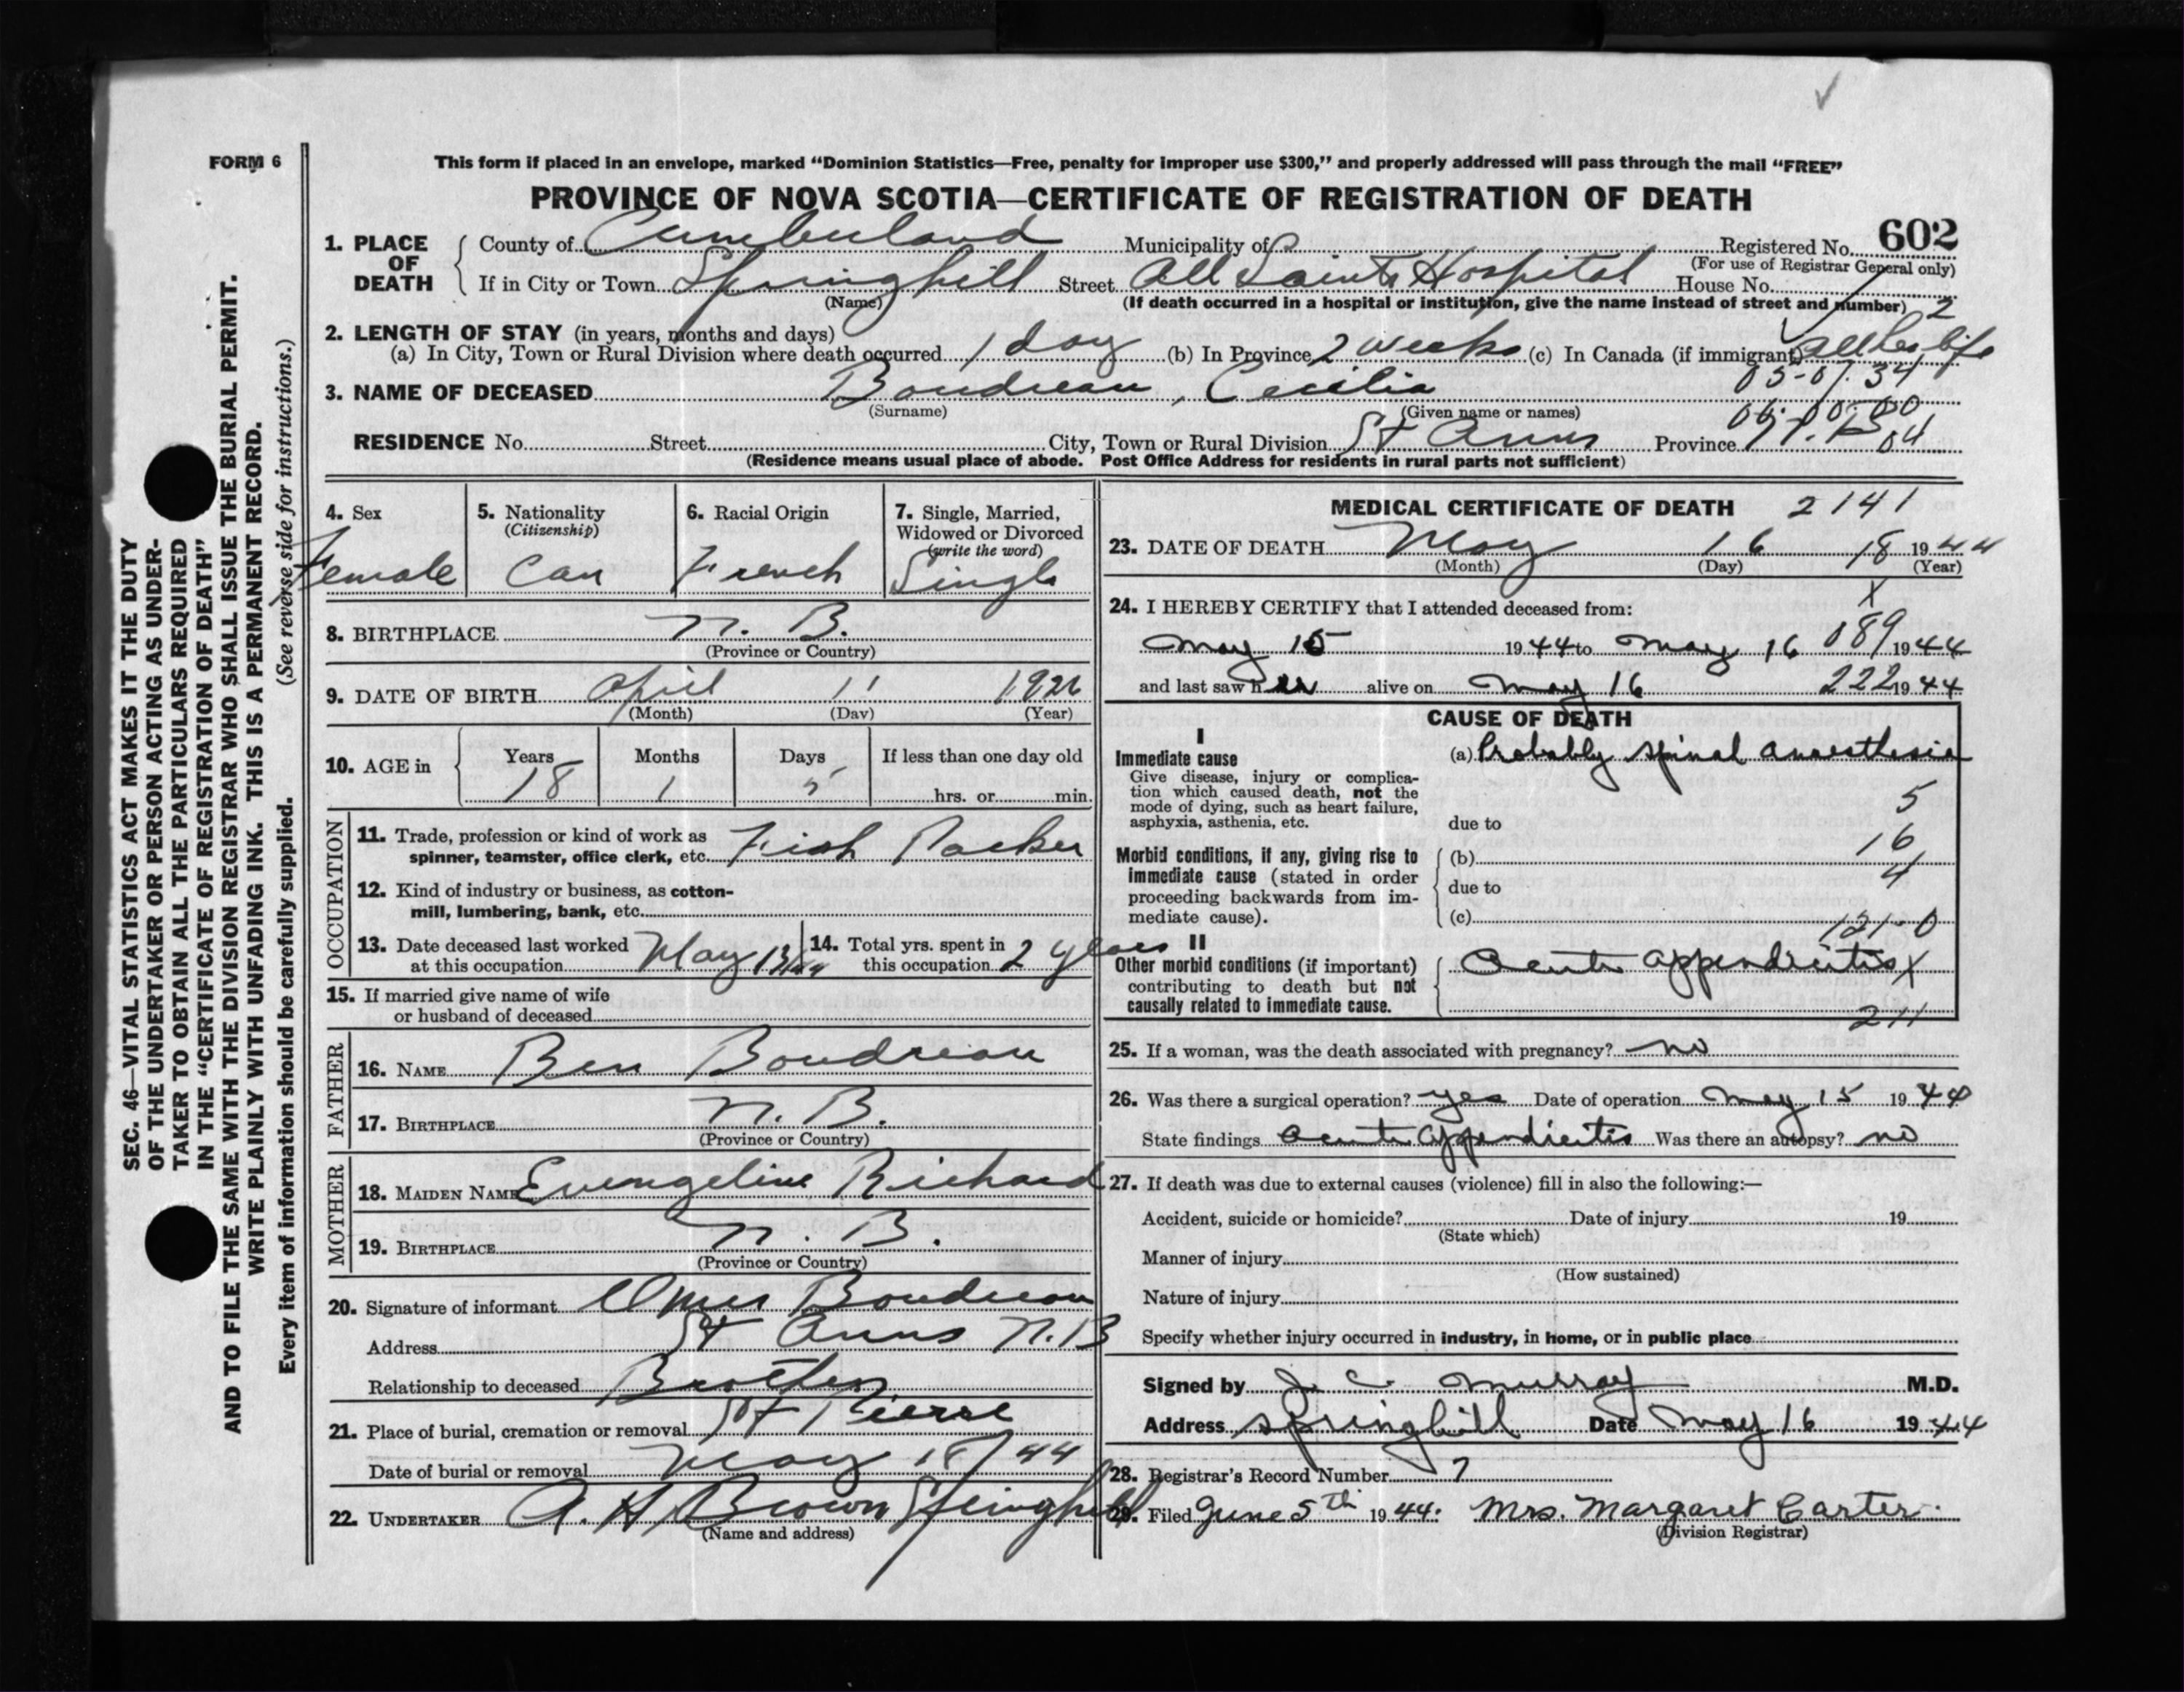 FORM 6
This form if placed in an envelope, marked “Dominion Statistics—Free, penalty for improper use $300,” and properly addressed will pass through the mail “FREE”
PROVINCE OF NOVA SCOTIA—CERTIFICATE OF REGISTRATION OF DEATH
1. PLACE OF DEATH County of Cumberland Municipality of Registered No. 602
(For use of Registrar General only)
If in City or Town Springhill Street All Saints Hospital House No.
(Name) (If death occurred in a hospital or institution, give the name instead of street and number) 2
2. LENGTH OF STAY (in years, months and days)
(a) In City, Town or Rural Division where death occurred 1 day (b) In Province 2 weeks (c) In Canada (if immigrant) all her life
3. NAME OF DECEASED Boudreau, Cecilia
(Surname) (Given name or names)
RESIDENCE No. Street City, Town or Rural Division St Anns Province N.B. 04
(Residence means usual place of abode. Post Office Address for residents in rural parts not sufficient)
4. Sex Female
5. Nationality (Citizenship) Can
6. Racial Origin French
7. Single, Married, Widowed or Divorced (write the word) Single
8. BIRTHPLACE N. B.
(Province or Country)
9. DATE OF BIRTH April 11 1926
(Month) (Day) (Year)
10. AGE in Years 18 Months 1 Days 5 If less than one day old hrs. or min.
OCCUPATION
11. Trade, profession or kind of work as spinner, teamster, office clerk, etc. Fish Packer
12. Kind of industry or business, as cotton-mill, lumbering, bank, etc.
13. Date deceased last worked at this occupation May 13/44
14. Total yrs. spent in this occupation 2 years
15. If married give name of wife or husband of deceased
FATHER
16. NAME Ben Boudreau
17. BIRTHPLACE N. B.
(Province or Country)
MOTHER
18. MAIDEN NAME Evangeline Richard
19. BIRTHPLACE N. B.
(Province or Country)
20. Signature of informant Boudreau
Address St Anns N.B
Relationship to deceased Brother
21. Place of burial, cremation or removal St Pierre
Date of burial or removal May 18/44
22. UNDERTAKER A. H Brown Springhill
(Name and address)
MEDICAL CERTIFICATE OF DEATH 2141
23. DATE OF DEATH May 16 18 1944
(Month) (Day) (Year)
24. I HEREBY CERTIFY that I attended deceased from: X
May 15 1944 to May 16 089 1944
and last saw her alive on May 16 222 1944
CAUSE OF DEATH
I
Immediate cause
Give disease, injury or complication which caused death, not the mode of dying, such as heart failure, asphyxia, asthenia, etc.
(a) Probably spinal anaesthesia
5
due to
16
Morbid conditions, if any, giving rise to immediate cause (stated in order proceeding backwards from immediate cause).
(b)
4
due to
(c) 121-0
II
Other morbid conditions (if important) contributing to death but not causally related to immediate cause.
Acute appendicitis X
211
25. If a woman, was the death associated with pregnancy? no
26. Was there a surgical operation? yes Date of operation May 15 1944
State findings Acute appendicitis Was there an autopsy? no
27. If death was due to external causes (violence) fill in also the following:—
Accident, suicide or homicide? Date of injury 19
(State which)
Manner of injury
(How sustained)
Nature of injury
Specify whether injury occurred in industry, in home, or in public place
Signed by J. C. Murray M.D.
Address Springhill Date May 16 1944
28. Registrar's Record Number 7
29. Filed June 5th 1944. Mrs. Margaret Carter.
(Division Registrar)
SEC. 46—VITAL STATISTICS ACT MAKES IT THE DUTY
OF THE UNDERTAKER OR PERSON ACTING AS UNDER-
TAKER TO OBTAIN ALL THE PARTICULARS REQUIRED
IN THE “CERTIFICATE OF REGISTRATION OF DEATH”
AND TO FILE THE SAME WITH THE DIVISION REGISTRAR WHO SHALL ISSUE THE BURIAL PERMIT.
WRITE PLAINLY WITH UNFADING INK. THIS IS A PERMANENT RECORD.
Every item of information should be carefully supplied. (See reverse side for instructions.)